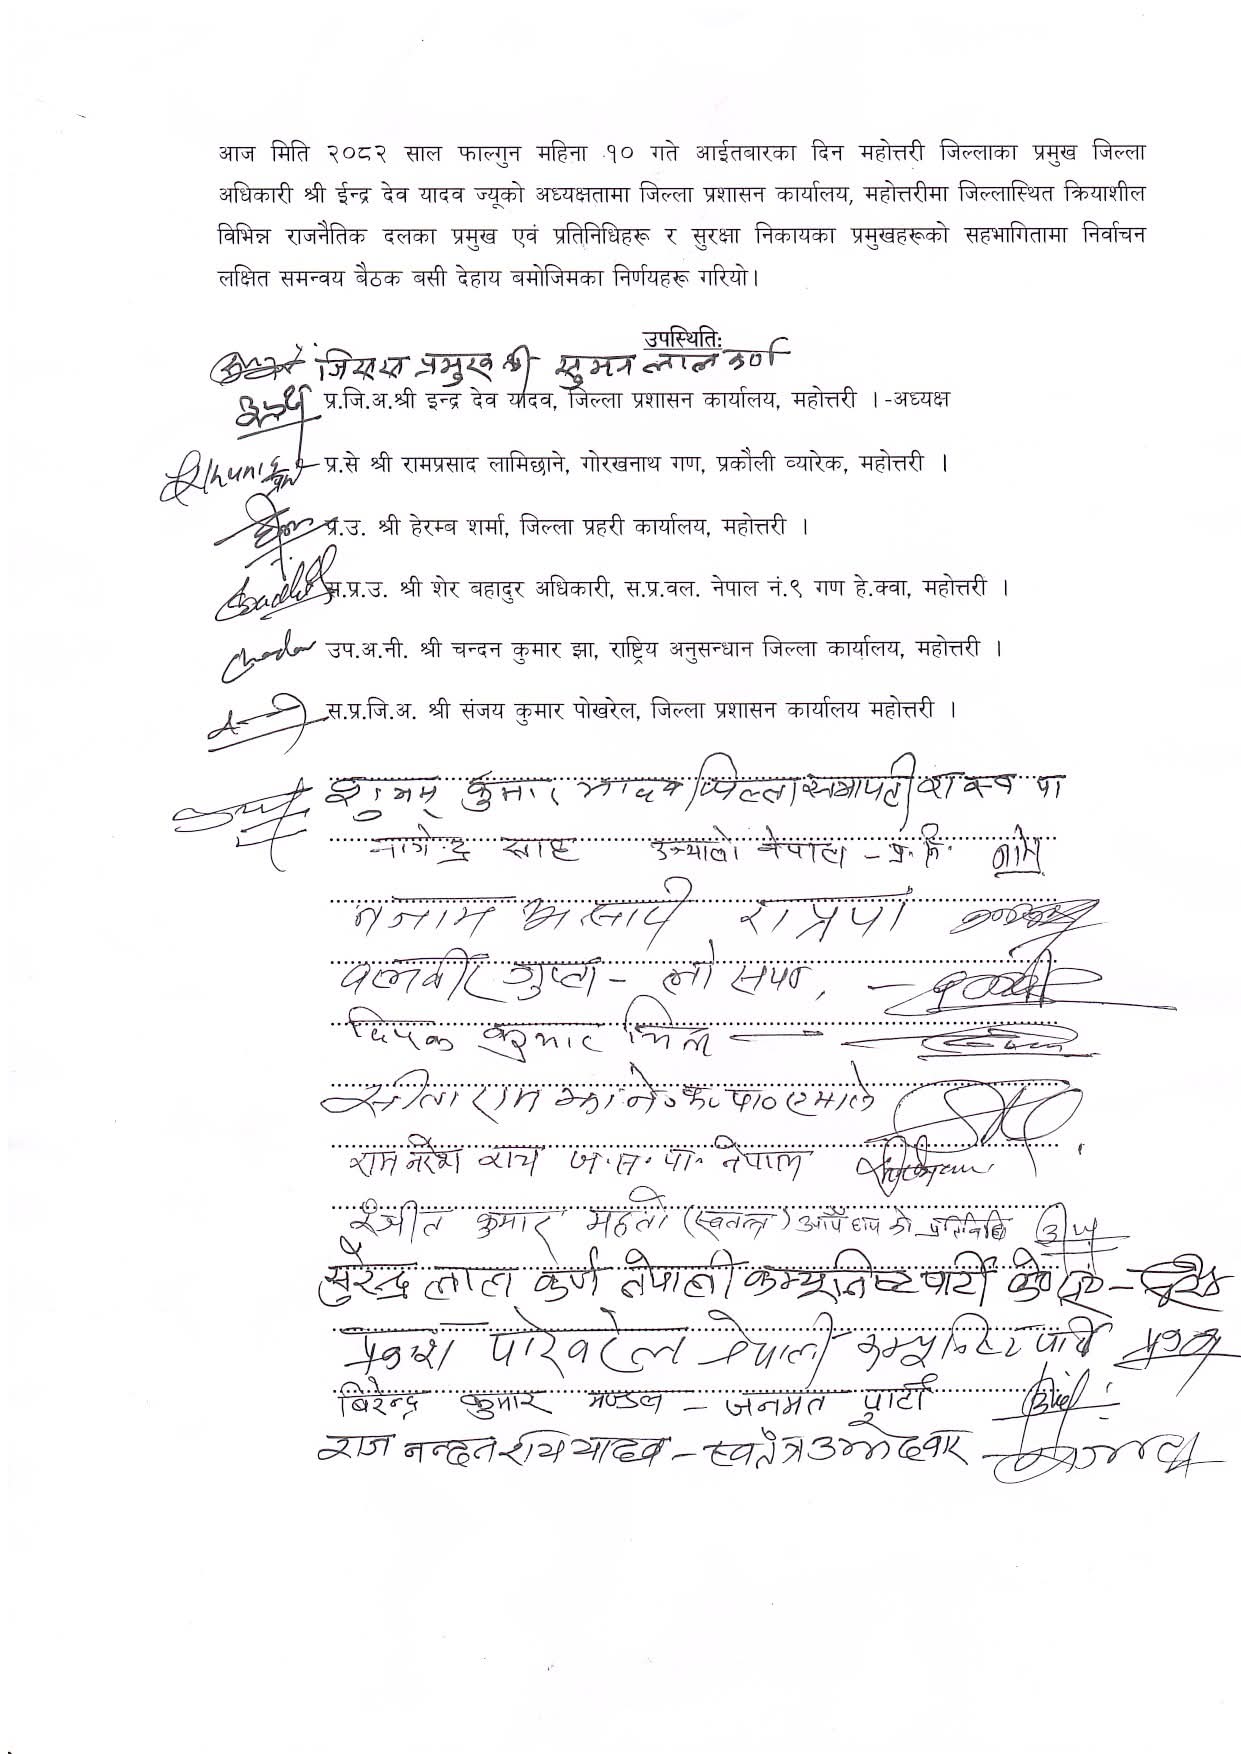 आज मिति २०८२ साल फाल्गुन महिना १० गते आईतबारका दिन महोत्तरी जिल्लाका प्रमुख जिल्ला
अधिकारी श्री ईन्द्र देव यादव ज्यूको अध्यक्षतामा जिल्ला प्रशासन कार्यालय, महोत्तरीमा जिल्लास्थित क्रियाशील
विभिन्न राजनैतिक दलका प्रमुख एवं प्रतिनिधिहरू र सुरक्षा निकायका प्रमुखहरूको सहभागितामा निर्वाचन
लक्षित समन्वय बैठक बसी देहाय बमोजिमका निर्णयहरू गरियो।
उपस्थितिः
जिससप्रमुख श्री सुमन लाल कर्ण
प्र.जि.अ.श्री इन्द्र देव यादव, जिल्ला प्रशासन कार्यालय, महोत्तरी । -अध्यक्ष
प्र.से श्री रामप्रसाद लामिछाने, गोरखनाथ गण, प्रकौली व्यारेक, महोत्तरी ।
प्र.उ. श्री हेरम्ब शर्मा, जिल्ला प्रहरी कार्यालय, महोत्तरी ।
स.प्र.उ. श्री शेर बहादुर अधिकारी, स.प्र.वल. नेपाल नं.९ गण हे.क्वा, महोत्तरी ।
उप.अ.नी. श्री चन्दन कुमार झा, राष्ट्रिय अनुसन्धान जिल्ला कार्यालय, महोत्तरी ।
स.प्र.जि.अ. श्री संजय कुमार पोखरेल, जिल्ला प्रशासन कार्यालय महोत्तरी ।
कुमार यादव जिल्ला सभापती रा स्व पा
नागेन्द्र साह उज्यालो नेपाल - प्र. नि.
राप्रपा
वलवीर गुप्ता - लोसपा,
दिपक कुमार
सीताराम झा ने.क.पा० एमाले
राम नरेश राय ज.स.पा. नेपाल
रंजीत कुमार महतो (स्वतन्त्र)
सुरेन्द्र लाल कर्ण नेपाली कम्युनिष्ट पार्टी
प्रकाश पोखरेल नेपाली कम्युनिष्ट पार्टी
बिरेन्द्र कुमार मण्डल - जनमत पार्टी
राज नन्दन राय यादव - स्वतंत्र उम्मेदवार